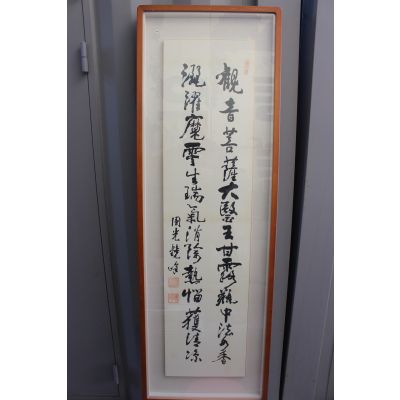 觀音菩薩大醫王甘露瓶中法水香
灑濯魔雲生瑞氣消除熱惱獲清涼